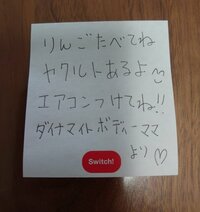 りんごたべてね
ヤクルトあるよ
エアコンつけてね!!
ダイナマイトボディーママ
より♡
Switch!